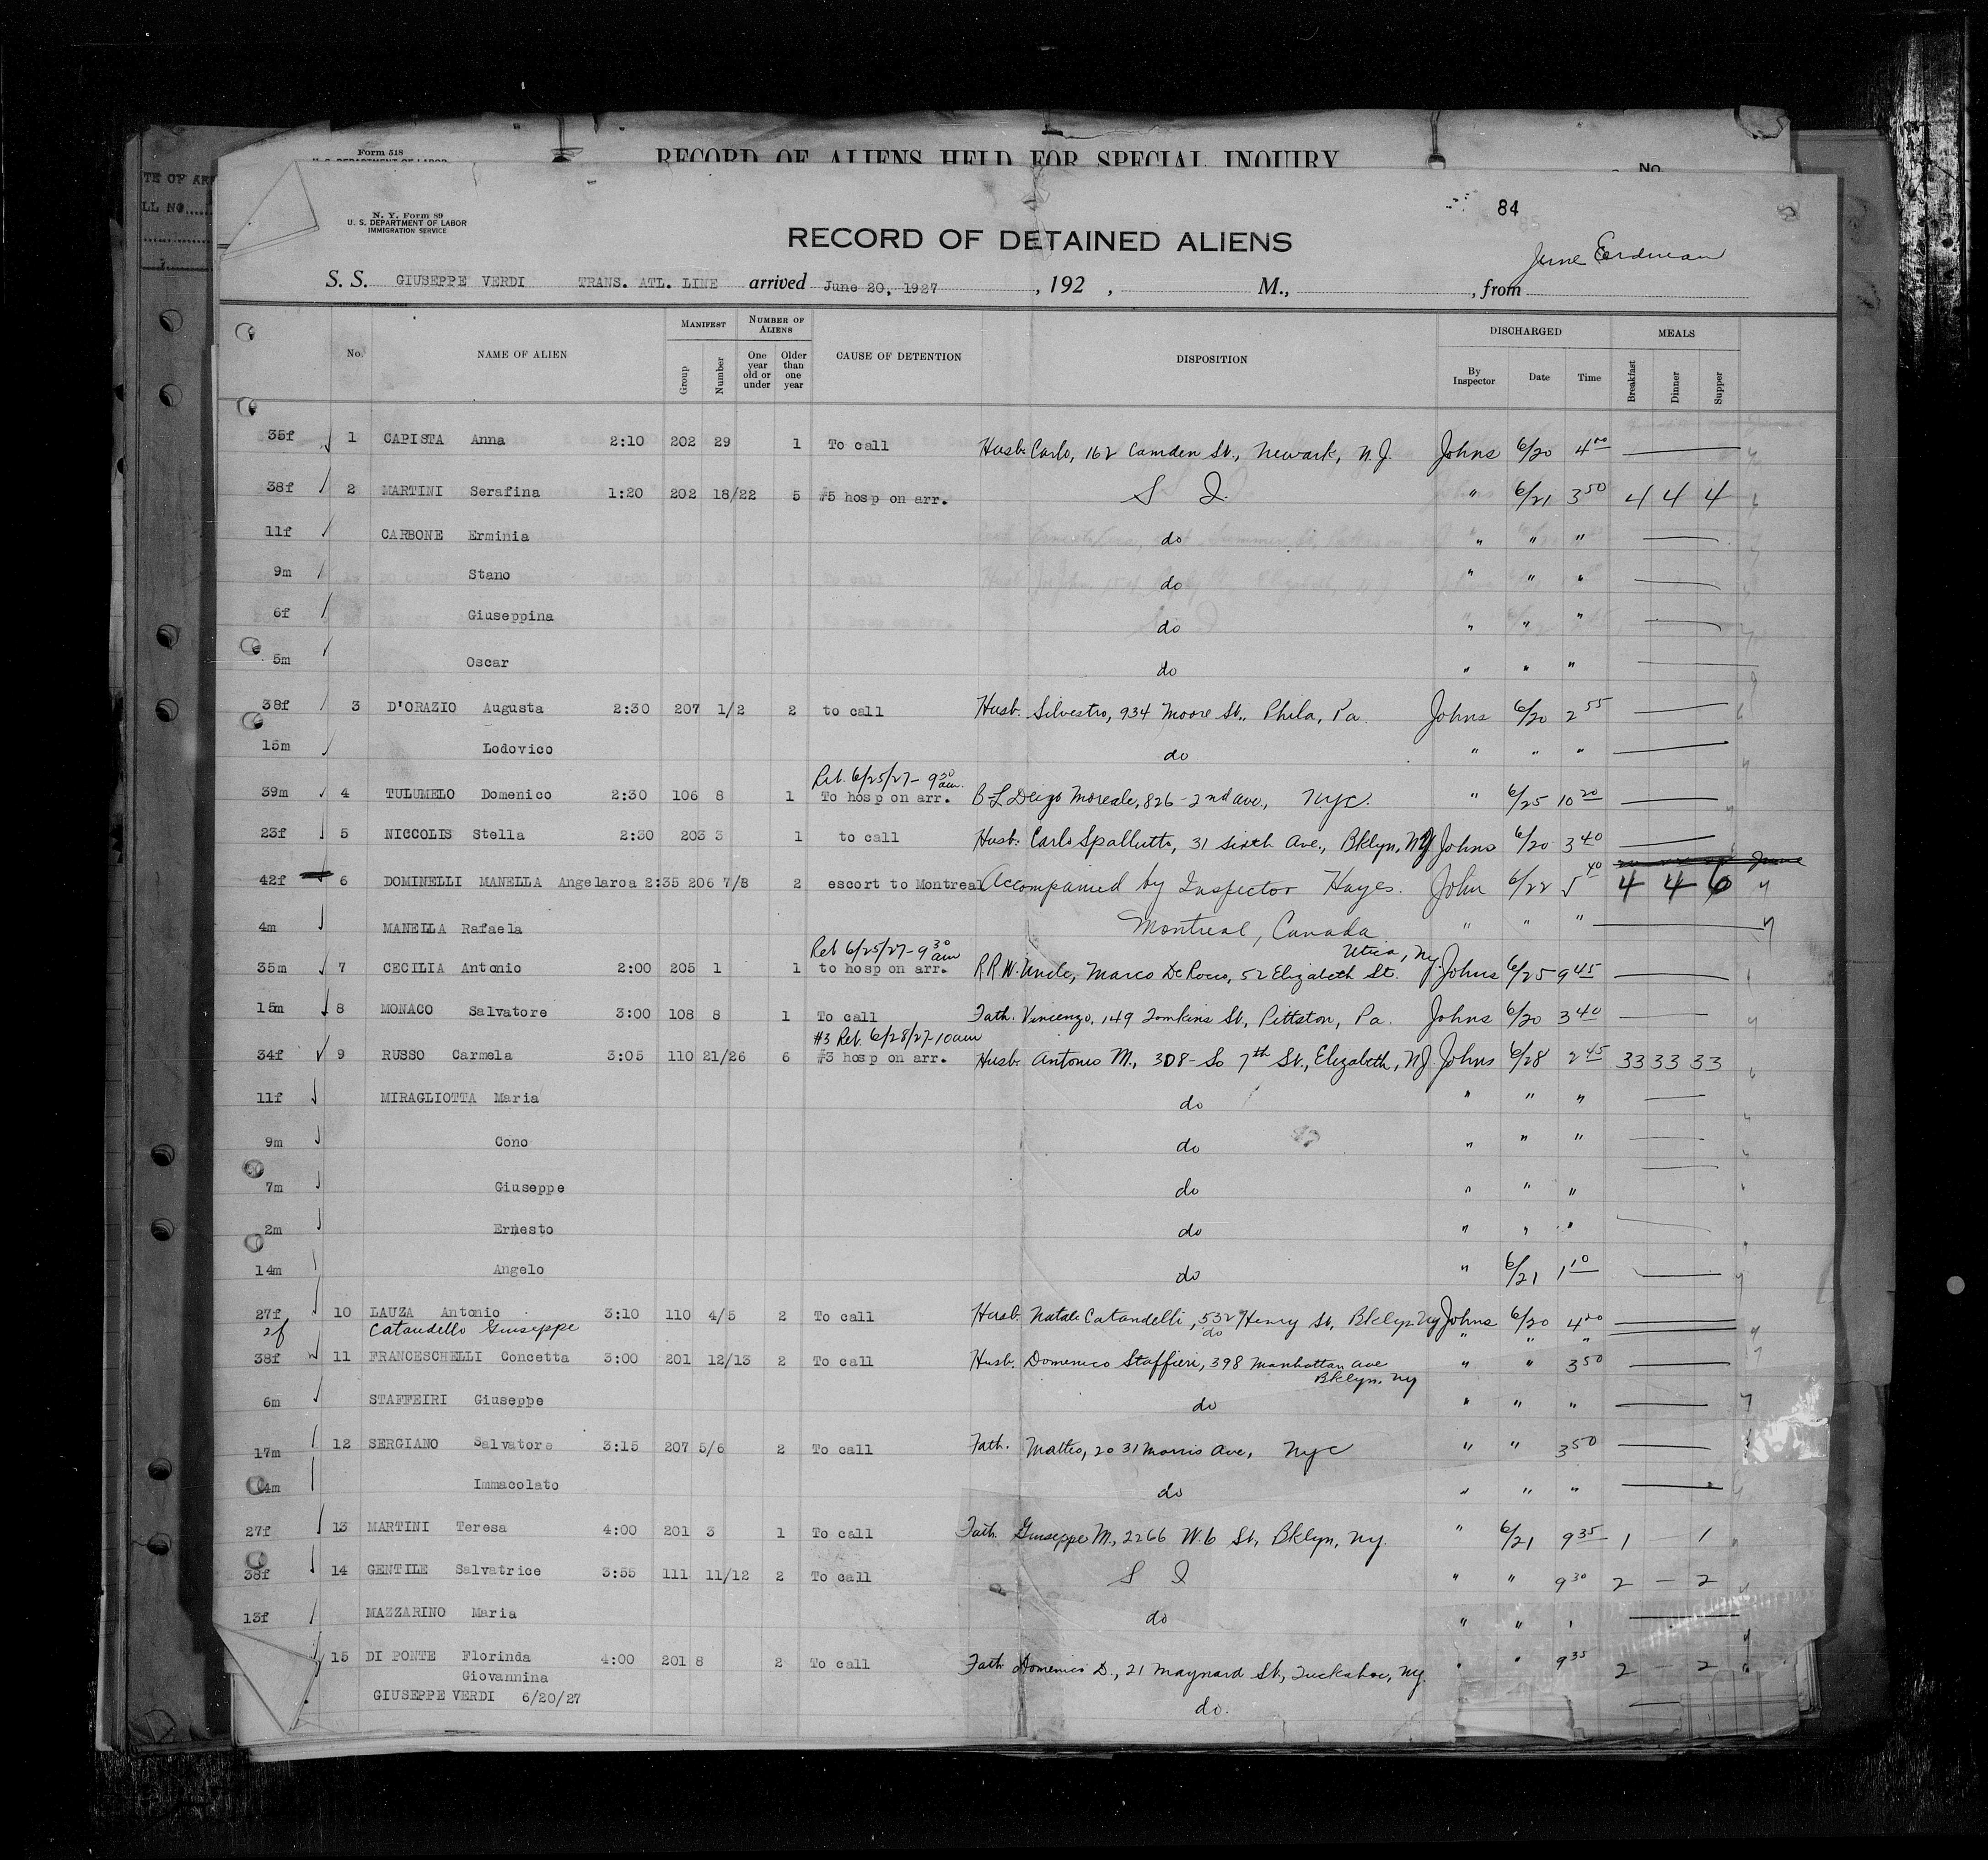 Form 518
U. S. DEPARTMENT OF LABOR
RECORD OF ALIENS HELD FOR SPECIAL INQUIRY
No.
TE OF ARR
LL NO.
84
N. Y. Form 89
U. S. DEPARTMENT OF LABOR
IMMIGRATION SERVICE
RECORD OF DETAINED ALIENS
S. S. GIUSEPPE VERDI TRANS. ATL. LINE arrived June 20, 1927, 192 , M., , from June Eerdman
No. NAME OF ALIEN MANIFEST Group Number NUMBER OF ALIENS One year old or under Older than one year CAUSE OF DETENTION DISPOSITION DISCHARGED By Inspector Date Time MEALS Breakfast Dinner Supper
35f 1 CAPISTA Anna 2:10 202 29 1 To call Husb. Carlo, 162 Camden St., Newark, N.J. Johns 6/20 4 00
38f 2 MARTINI Serafina 1:20 202 18/22 5 #5 hosp on arr. S I. " 6/21 3 50 4 4 4
11f CARBONE Erminia do " " "
9m Stano do " " "
6f Giuseppina do " " "
5m Oscar do " " "
38f 3 D'ORAZIO Augusta 2:30 207 1/2 2 to call Husb. Silvestro, 934 Moore St., Phila, Pa. Johns 6/20 2 55
15m Lodovico do " " "
Ret. 6/25/27 - 9 30 am.
39m 4 TULUMELO Domenico 2:30 106 8 1 To hosp on arr. B-L Deigo Moreale, 826 - 2nd Ave., NYC. " 6/25 10 20
23f 5 NICCOLIS Stella 2:30 203 3 1 to call Husb. Carlo Spallutto, 31 Sixth Ave., Bklyn, NY Johns 6/20 3 40
42f 6 DOMINELLI MANELLA Angelaroa 2:35 206 7/8 2 escort to Montreal Accompanied by Inspector Hayes. John 6/22 5 40 4 4 6
4m MANELLA Rafaela Montreal, Canada " " "
Ret 6/25/27 - 9 30 am Utica, Ny.
35m 7 CECILIA Antonio 2:00 205 1 1 to hosp on arr. R.R.W. Uncle, Marco De Rocco, 52 Elizabeth St. Johns 6/25 9 45
15m 8 MONACO Salvatore 3:00 108 8 1 To call Fath. Vincenzo, 149 Tomkins St, Pittston, Pa. Johns 6/20 3 40
#3 Ret. 6/28/27 - 10 am
34f 9 RUSSO Carmela 3:05 110 21/26 6 #3 hosp on arr. Husb. Antonio M., 308 - So 7th St., Elizabeth, NJ. Johns 6/28 2 45 33 33 33
11f MIRAGLIOTTA Maria do " " "
9m Cono do " " "
7m Giuseppe do " " "
2m Ernesto do " " "
14m Angelo do " 6/21 1 10
27f 10 LAUZA Antonio 3:10 110 4/5 2 To call Husb. Natale Catandelli, 532 Henry St, Bklyn Ny Johns 6/20 4 20
2f Catandello Giuseppe do " " "
38f 11 FRANCESCHELLI Concetta 3:00 201 12/13 2 To call Husb. Domenico Staffieri, 398 Manhattan Ave " " 3 50
Bklyn, Ny
6m STAFFEIRI Giuseppe do " " "
17m 12 SERGIANO Salvatore 3:15 207 5/6 2 To call Fath. Matteo, 2031 Morris Ave, Nyc " " 3 50
Immacolato do " " "
27f 13 MARTINI Teresa 4:00 201 3 1 To call Fath. Giuseppe M., 2266 W. 6 St, Bklyn, Ny. " 6/21 9 35 1 1
38f 14 GENTILE Salvatrice 3:55 111 11/12 2 To call S I " " 9 30 2 — 2
13f MAZZARINO Maria do " " "
15 DI PONTE Florinda 4:00 201 8 2 To call Fath Domenico D., 21 Maynard St, Tuckahoe, Ny. " " 9 35 2 — 2
Giovannina do.
GIUSEPPE VERDI 6/20/27